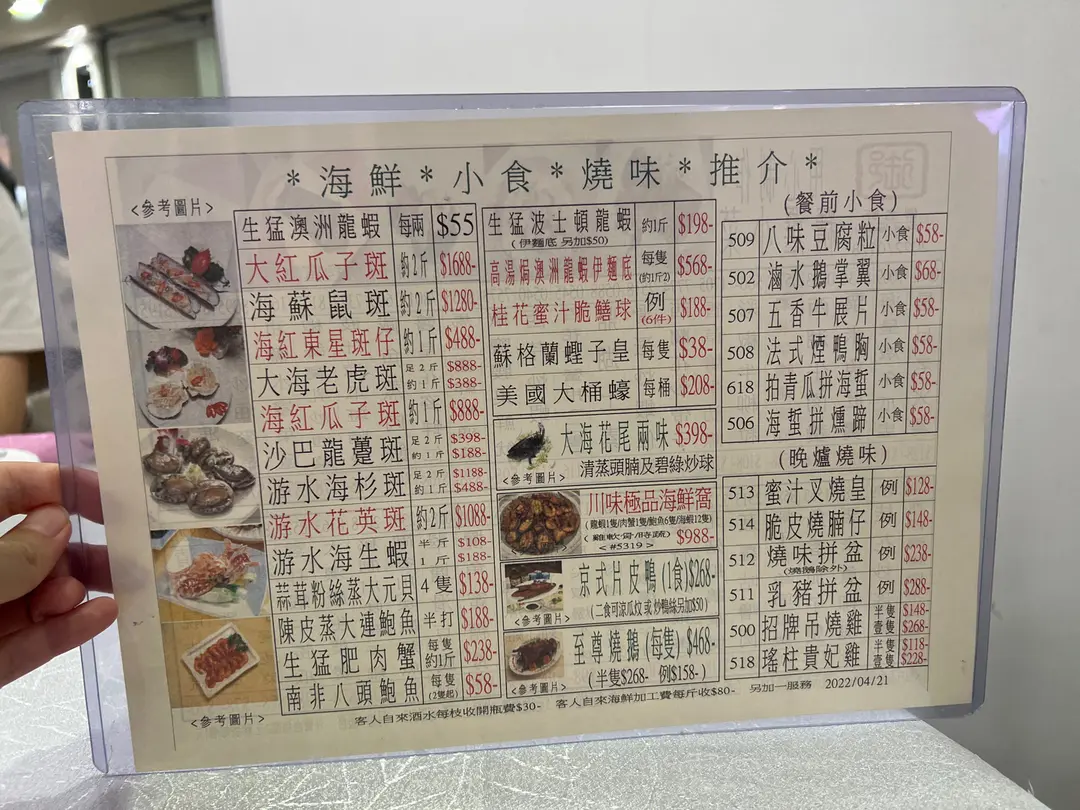 *海鮮*小食*燒味*推介*
<參考圖片>
生猛澳洲龍蝦 每兩 $55
大紅瓜子斑 約2斤 $1688-
海蘇鼠斑 約2斤 $1280-
海紅東星斑仔 約1斤 $488-
大海老虎斑 足2斤 $888- 約1斤 $388-
海紅瓜子斑 約1斤 $888-
沙巴龍躉斑 足2斤 $398- 約1斤 $188-
游水海杉斑 足2斤 $1188- 約1斤 $488-
游水花英斑 約2斤 $1088-
游水海生蝦 半斤 $108- 1斤 $188-
蒜茸粉絲蒸大元貝 4隻 $138-
陳皮蒸大連鮑魚 半打 $188-
生猛肥肉蟹 每隻 約1斤 $238-
南非八頭鮑魚 每隻 (2隻起) $58-
<參考圖片>
生猛波士頓龍蝦 約1斤 $198-
(伊麵底 另加$50)
高湯焗澳洲龍蝦伊麵底 每隻 (約1斤2) $568-
桂花蜜汁脆鱔球 例 (6件) $188-
蘇格蘭蟶子皇 每隻 $38-
美國大桶蠔 每桶 $208-
大海花尾兩味 $398-
清蒸頭腩及碧綠炒球
<參考圖片>
川味極品海鮮窩
(龍蝦1隻/肉蟹1隻/鮑魚6隻/海蝦12隻)
(雞軟骨/時蔬)
<#5319> $988-
京式片皮鴨 (1食)$268-
(二食可涼瓜炆或炒鴨絲另加$50)
<參考圖片>
至尊燒鵝 (每隻) $468-
(半隻$268- 例$158-)
<參考圖片>
(餐前小食)
509 八味豆腐粒 小食 $58-
502 滷水鵝掌翼 小食 $68-
507 五香牛展片 小食 $58-
508 法式煙鴨胸 小食 $58-
618 拍青瓜拼海蜇 小食 $58-
506 海蜇拼燻蹄 小食 $58-
(晚爐燒味)
513 蜜汁叉燒皇 例 $128-
514 脆皮燒腩仔 例 $148-
512 燒味拼盆 例 $238-
(燒鵝除外)
511 乳豬拼盆 例 $288-
500 招牌吊燒雞 半隻 $148- 壹隻 $268-
518 瑤柱貴妃雞 半隻 $118- 壹隻 $228-
客人自來酒水每枝收開瓶費$30- 客人自來海鮮加工費每斤收$80- 另加一服務 2022/04/21